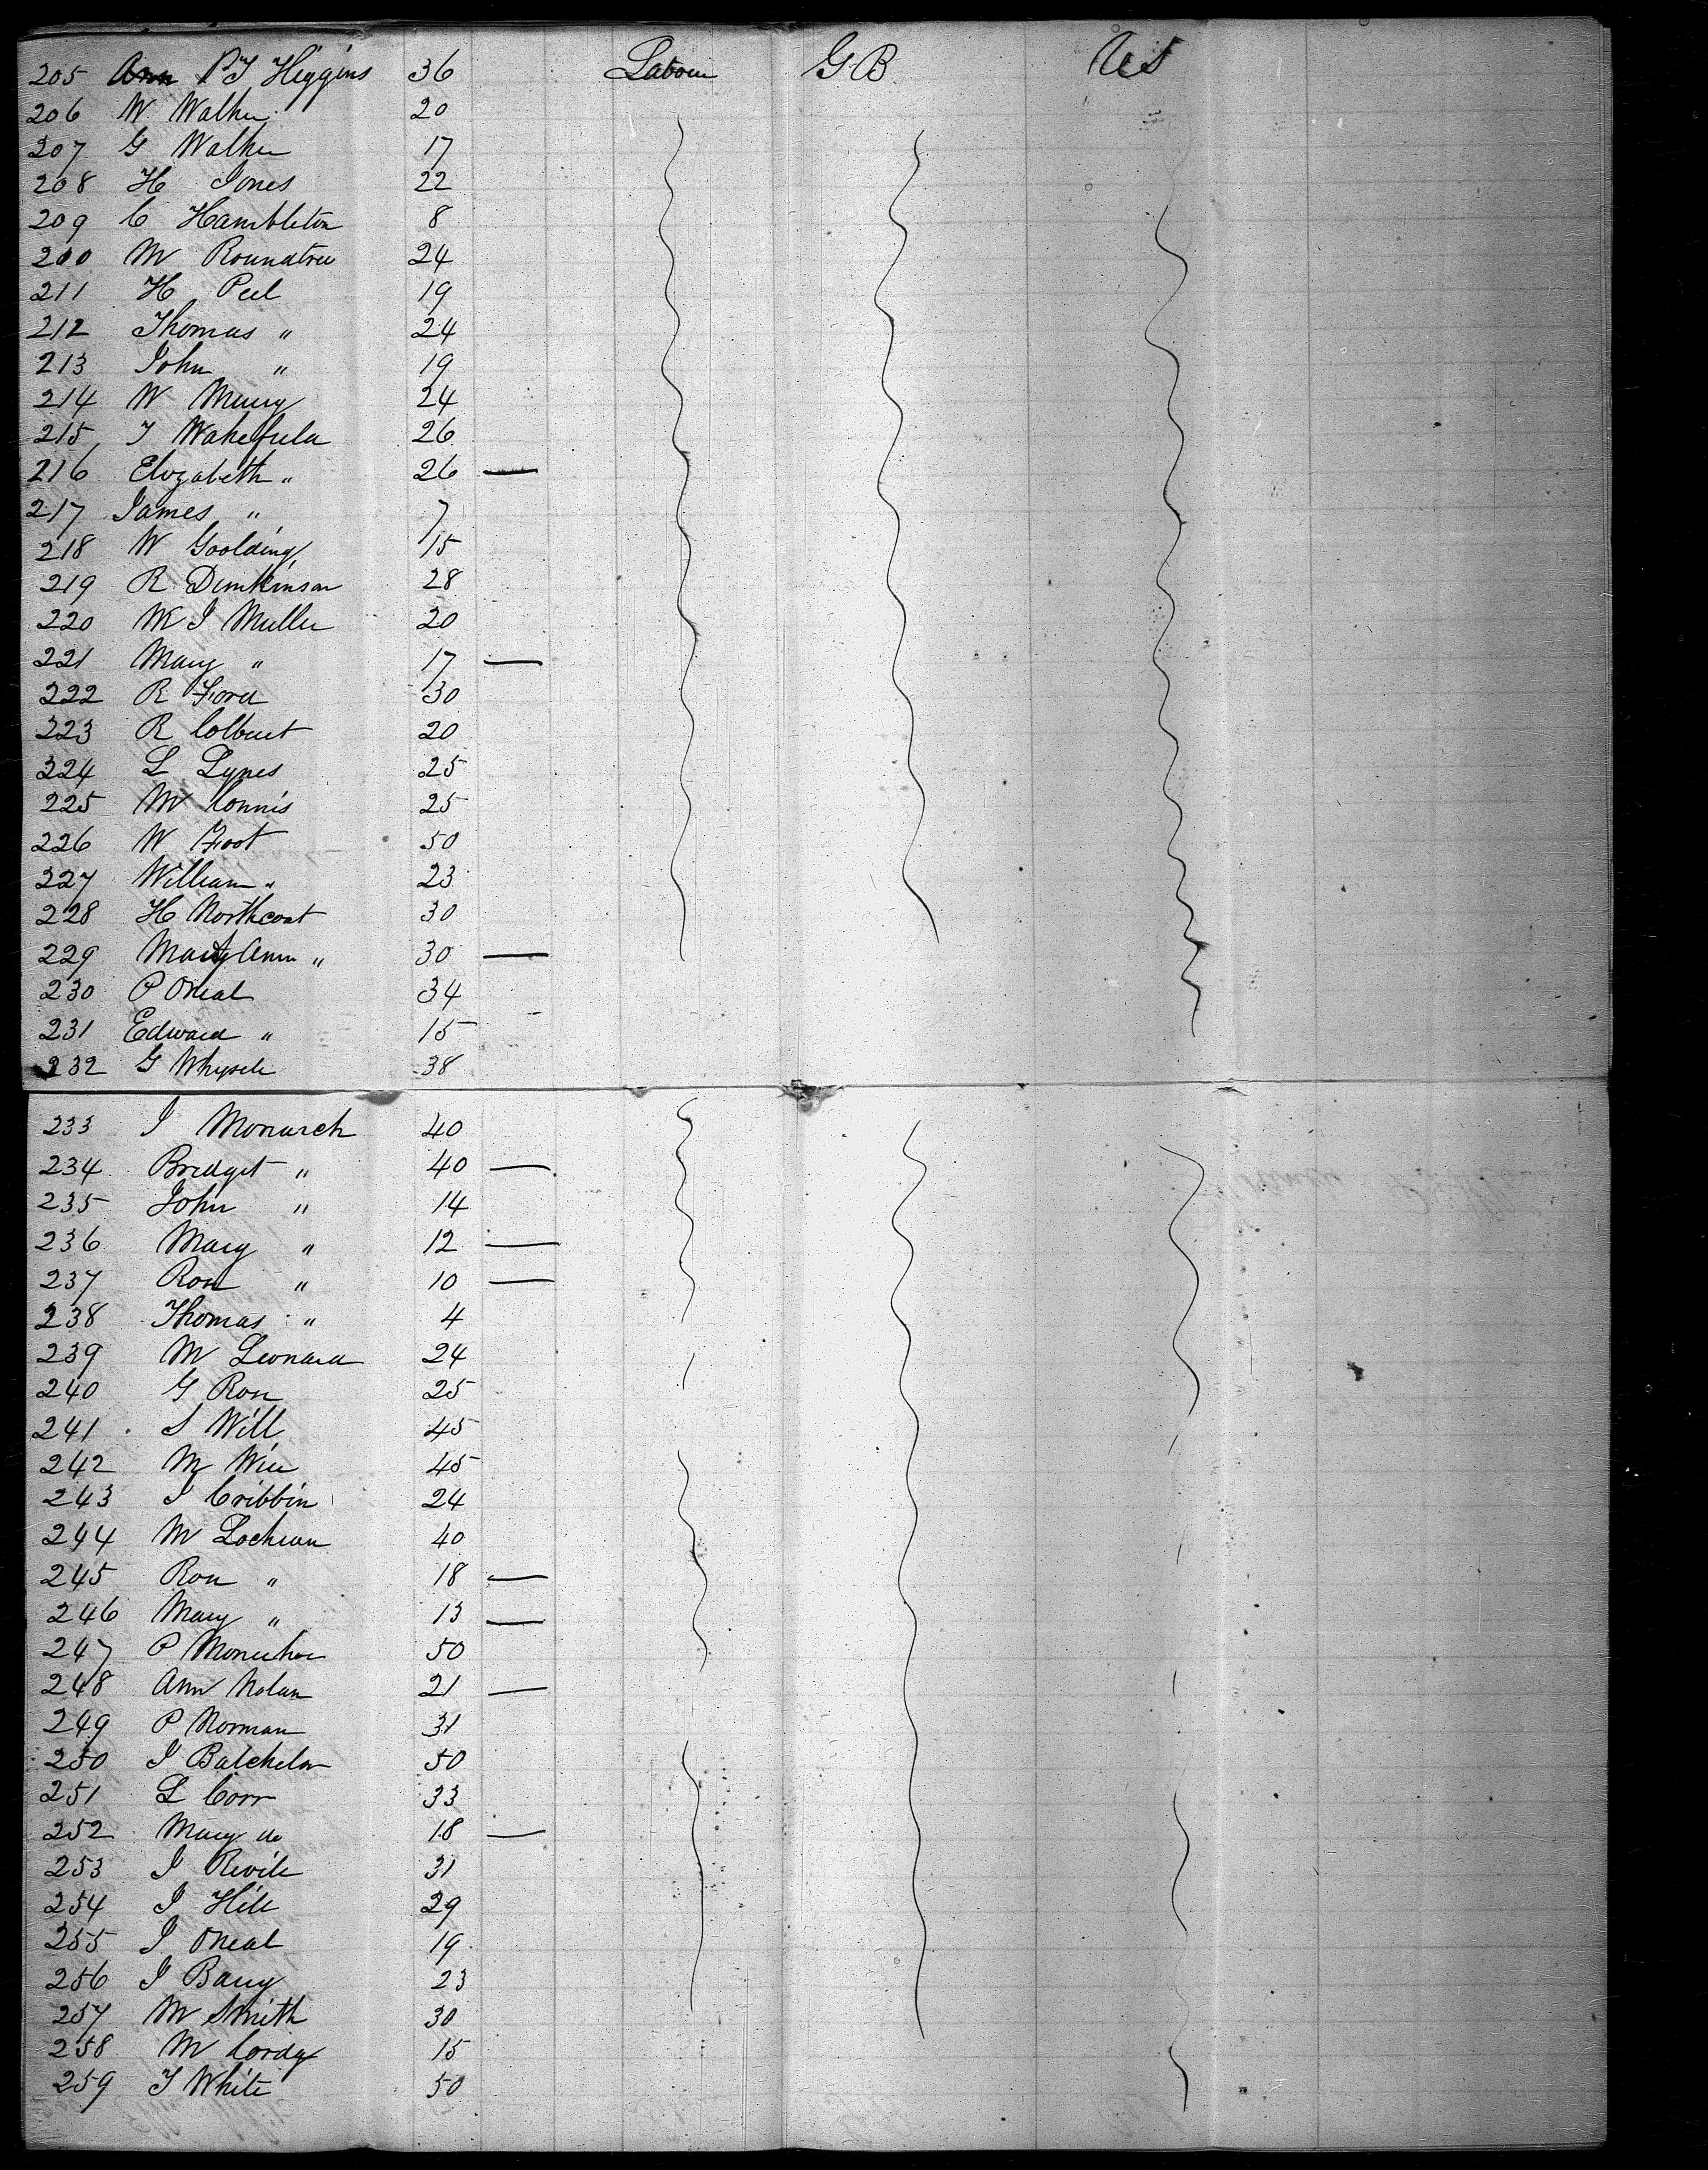 205 Ann P J Higgins 36 Labour G B U S
206 W Walker 20
207 G Walker 17
208 H Jones 22
209 C Hambleton 8
200 M Roundtree 24
211 H Peel 19
212 Thomas " 24
213 John " 19
214 W 24
215 J Wakefield 26
216 Elizabeth " 26 —
217 James " 7
218 W Goolding 15
219 R Dunkinson 28
220 W J Muller 20
221 Mary " 17 —
222 R Ford 30
223 R Colbert 20
224 L Lynes 25
225 M Connis 25
226 W Foot 50
227 William " 23
228 H Northcoat 30
229 Mary Ann " 30 —
230 P ONeal 34
231 Edward " 15
232 G 38
233 J Monarch 40
234 Bridget " 40 —
235 John " 14
236 Mary " 12 —
237 Rose " 10 —
238 Thomas " 4
239 M Leonard 24
240 G Rose 25
241 S Will 45
242 M 45
243 J Cribbin 24
244 M 40
245 Rose " 18 —
246 Mary " 13 —
247 P 50
248 Ann Nolan 21 —
249 P Norman 31
250 J Batchelor 50
251 L Corr 33
252 Mary do 18 —
253 J Revile 31
254 J Hill 29
255 J ONeal 19
256 J Barry 23
257 M Smith 30
258 M Cordy 15
259 J White 50